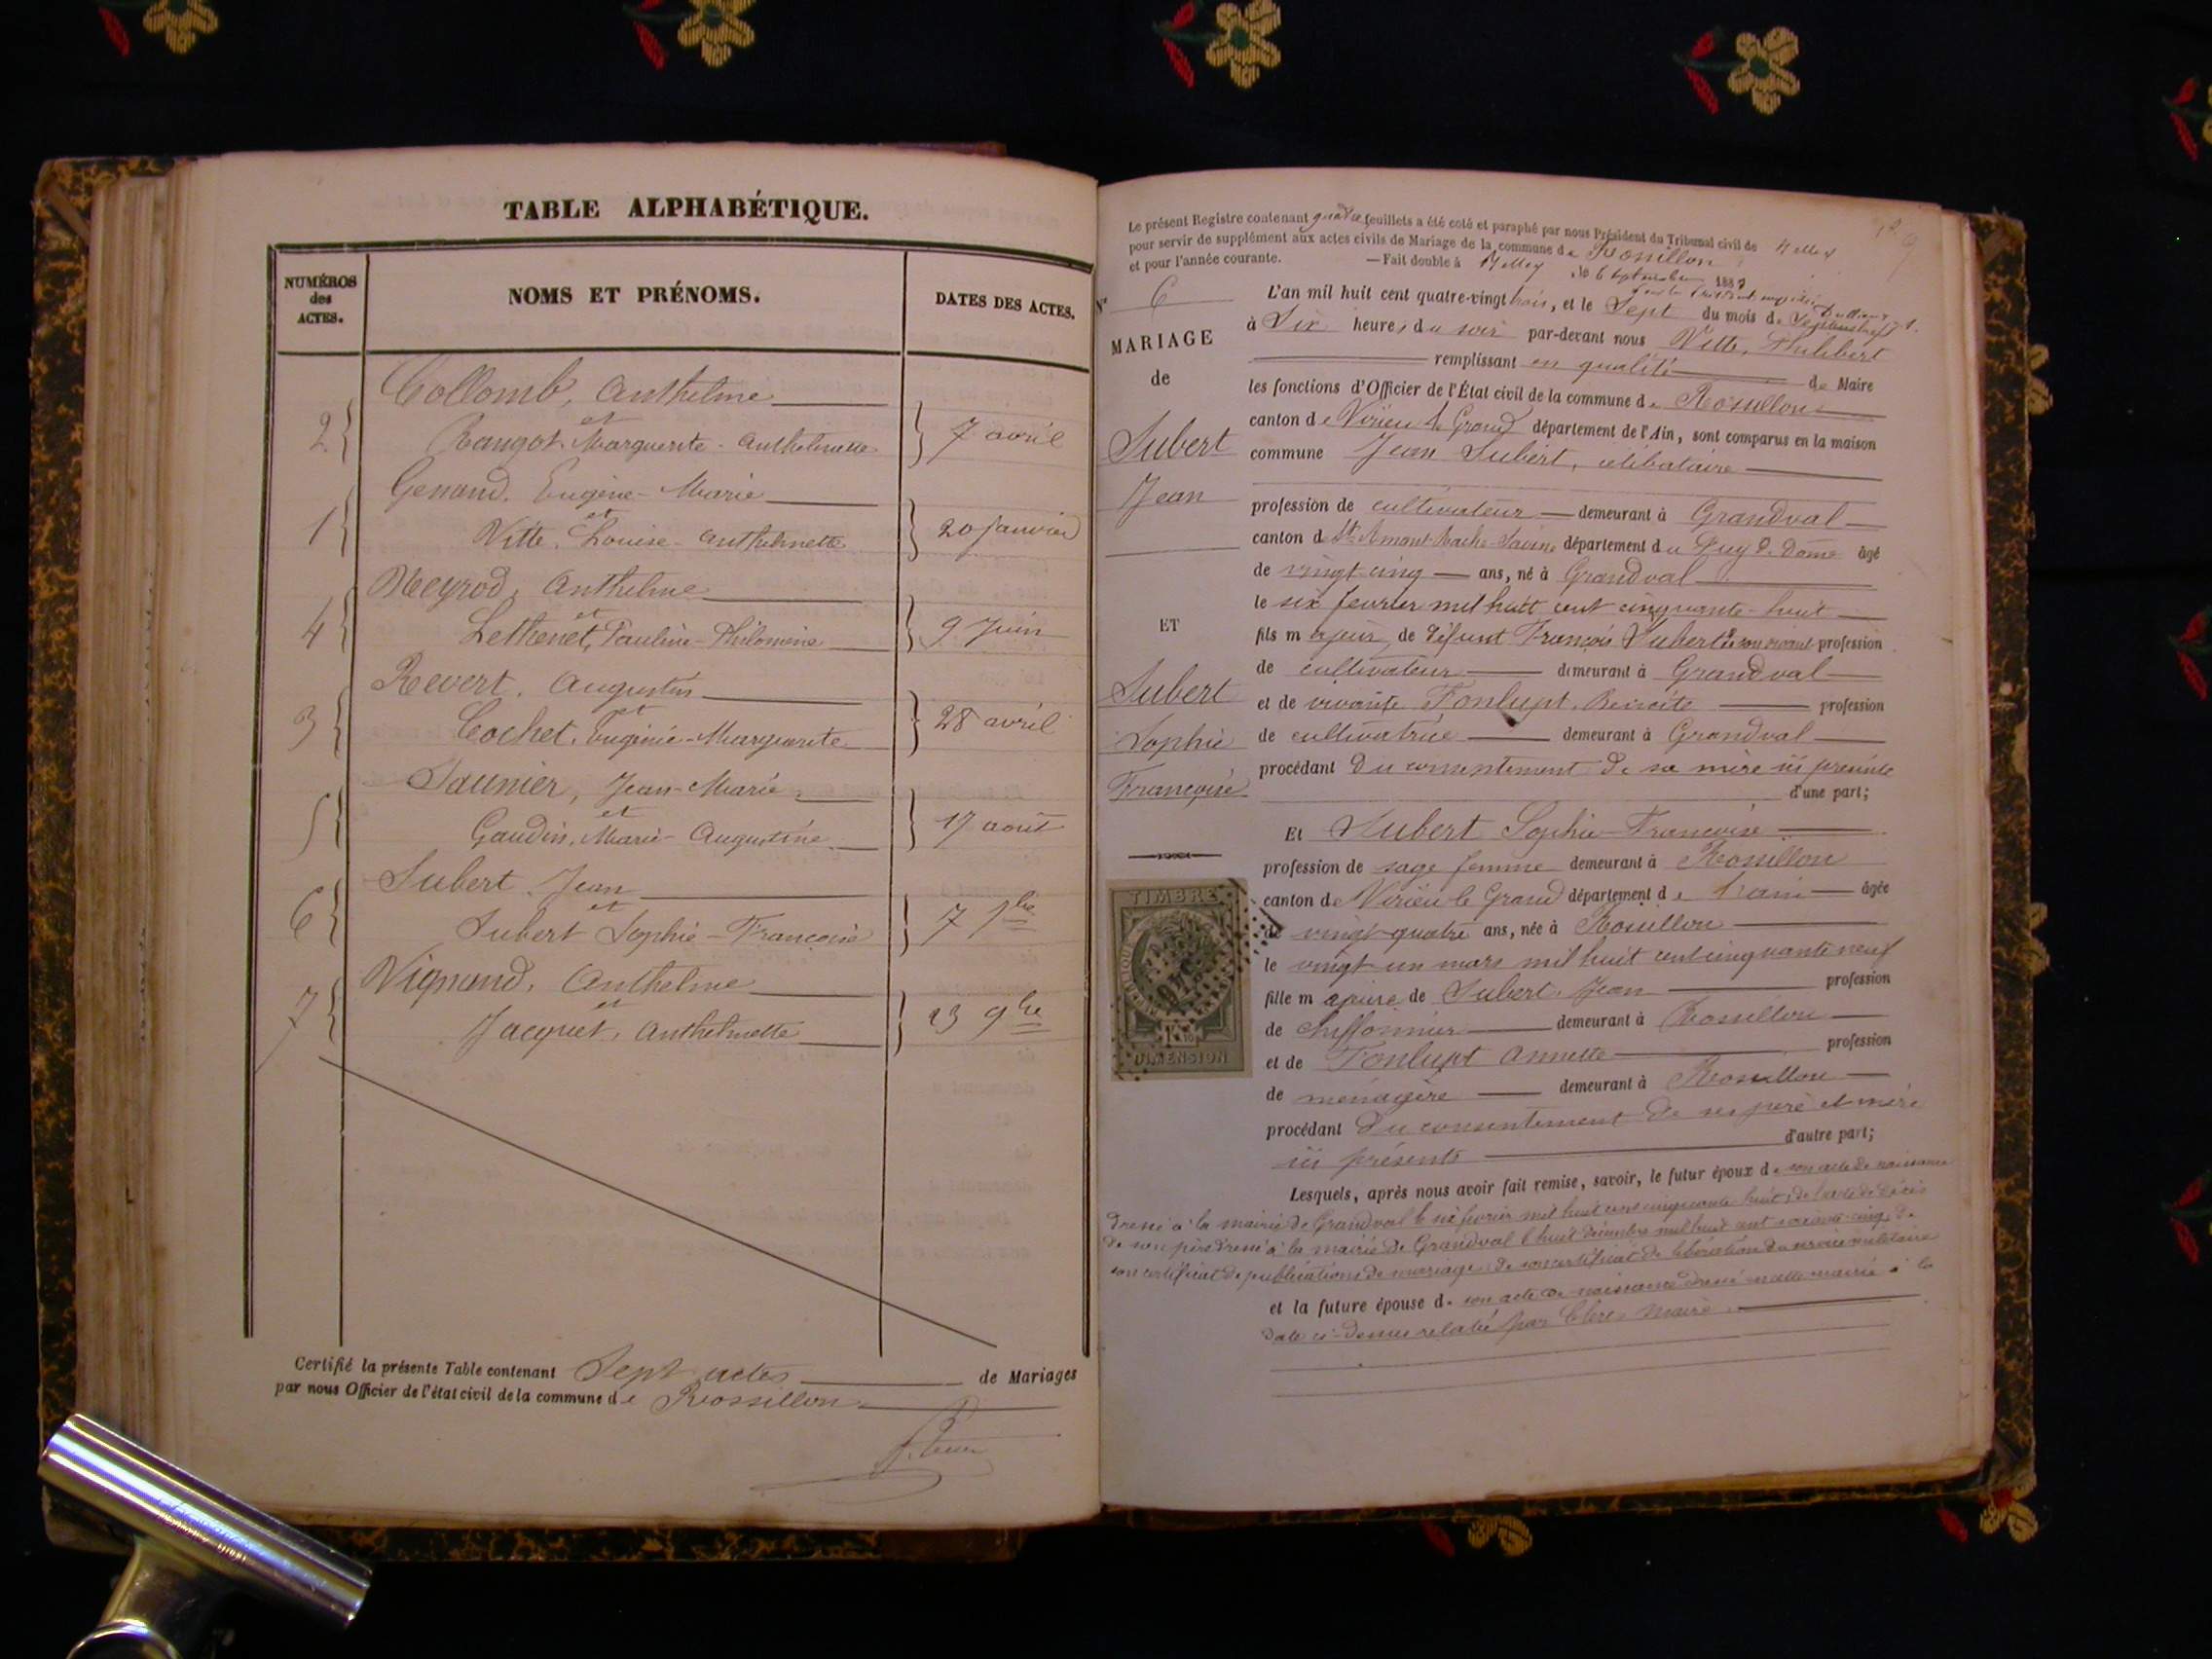 TABLE ALPHABÉTIQUE.
NUMÉROS des ACTES.
NOMS ET PRÉNOMS.
DATES DES ACTES.
Collomb, Anthelme
2 et 7 avril
Rangot Marguerite-Anthelmette
Genand, Eugène-Marie
1 et 20 janvier
Vitte, Louise-Anthelmette
Meyrod, Anthelme
4 et 9 Juin
Lethenet, Pauline-Philomène
Revert, Augustin
3 et 28 avril
Cochet, Eugénie-Marguerite
Saunier, Jean-Marie
5 et 17 août
Gaudin, Marie-Augustine
Subert Jean
6 et 7 7bre
Subert Sophie-Françoise
Vignand, Anthelme
7 et 23 9bre
Jacquet, Anthelmette
Certifié la présente Table contenant Sept actes de Mariages
par nous Officier de l'état civil de la commune de Rossillon
Le présent Registre contenant quatre feuillets a été coté et paraphé par nous Président du Tribunal civil de Belley
pour servir de supplément aux actes civils de Mariage de la commune de Rossillon
et pour l'année courante. — Fait double à Belley, le 6 septembre 1883
N° 6
L'an mil huit cent quatre-vingt trois, et le Sept du mois de Septembre
à Six heures du soir par-devant nous Vitte, Philibert
MARIAGE
remplissant en qualité de Maire
de
les fonctions d'Officier de l'État civil de la commune de Rossillon
canton de Virieu le Grand département de l'Ain, sont comparus en la maison
Subert
commune Jean Subert, célibataire
Jean
profession de cultivateur demeurant à Grandval
canton de St Amant Roche Savine département du Puy de Dôme âgé
de vingt cinq ans, né à Grandval
le six février mil huit cent cinquante-huit
ET
fils majeur de défunt François Subert de son vivant profession
de cultivateur demeurant à Grandval
Subert
et de vivante Fonlupt, Benoîte profession
Sophie
de cultivatrice demeurant à Grandval
procédant du consentement de sa mère ici présente
Françoise
d'une part;
Et Subert Sophie-Françoise
profession de sage femme demeurant à Rossillon
canton de Virieu le Grand département de l'ain âgée
de vingt quatre ans, née à Rossillon
le vingt un mars mil huit cent cinquante neuf
fille majeure de Subert, Jean profession
de chiffonnier demeurant à Rossillon
et de Fonlupt Annette profession
de ménagère demeurant à Rossillon
procédant du consentement de ses père et mère
ici présents d'autre part;
TIMBRE
1F
DIMENSION
Lesquels, après nous avoir fait remise, savoir, le futur époux de son acte de naissance
dressé à la mairie de Grandval le six février mil huit cent cinquante huit, de l'acte de décès
de son père dressé à la mairie de Grandval le huit décembre mil huit cent soixante-cinq, de
son certificat de publications de mariage, de son certificat de libération du service militaire
et la future épouse de son acte de naissance dressé en cette mairie à la
date ci-dessus relatée par Clerc, Maire.